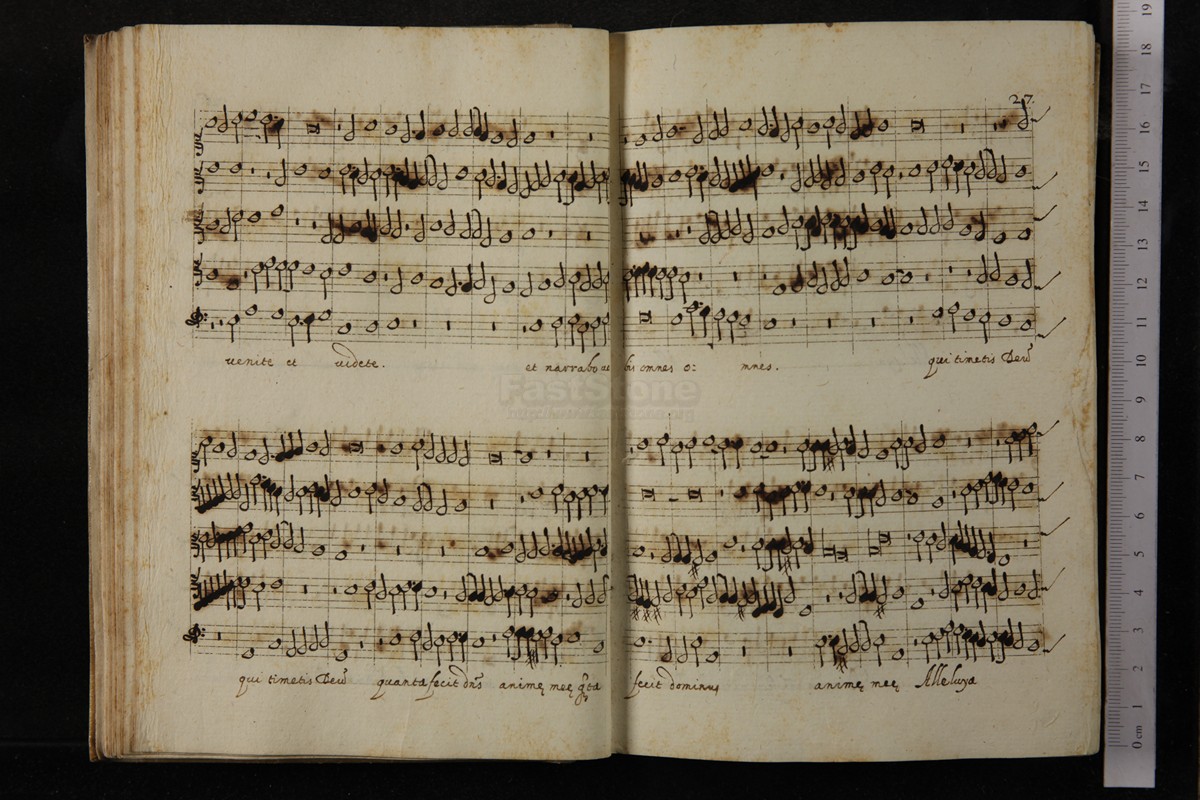 27.
venite et videte. et narrabo vobis omnes o: mnes. qui timetis Deū
FastStone
qui timetis Deū quanta fecit dñs animę meę q̃ta fecit dominus animę meę Alleluya
19
18
17
16
15
14
13
12
11
10
9
8
7
6
5
4
3
2
1
0 cm